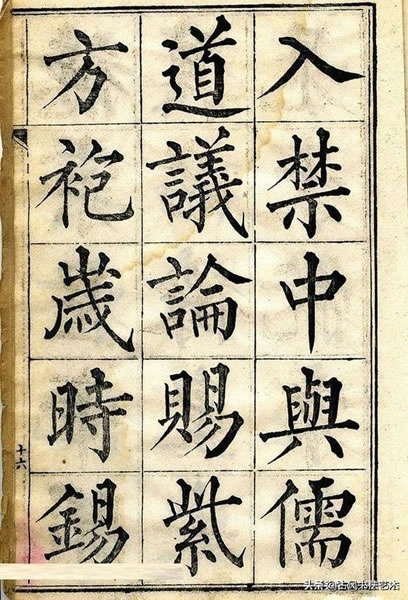 入禁中與儒
道議論賜紫
方袍歲時錫
十六
头条@古风书法艺术